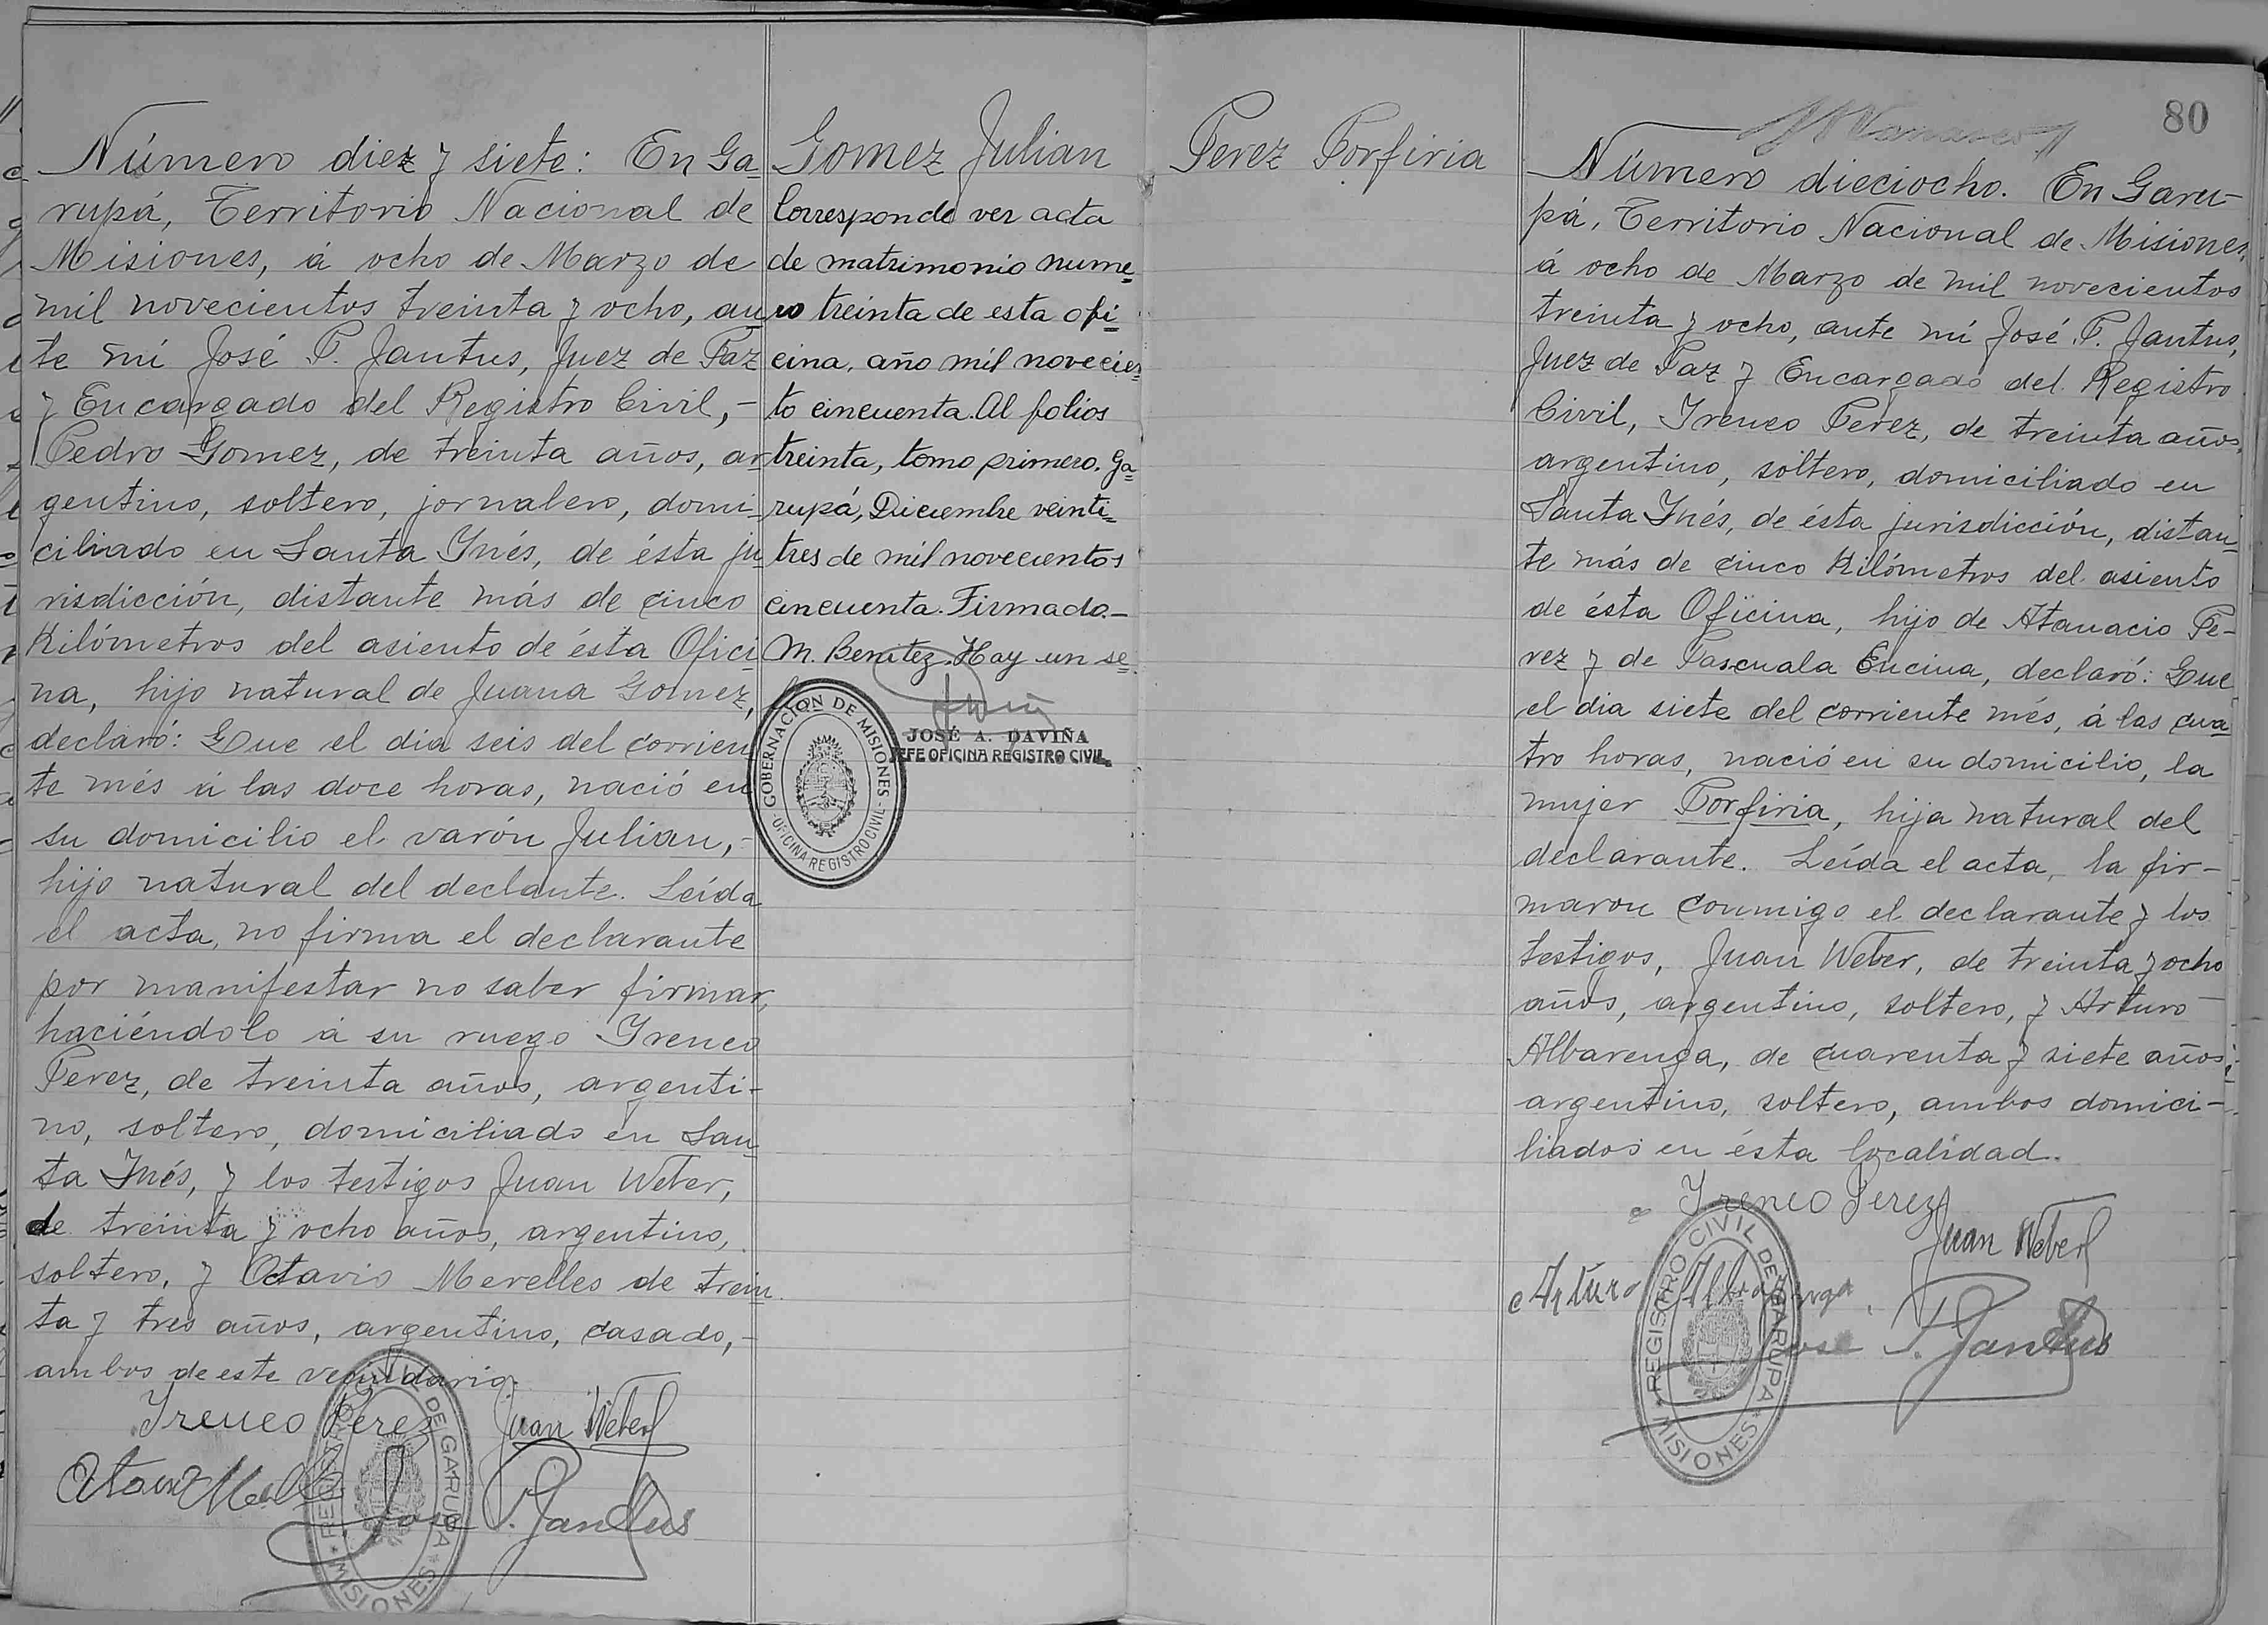 Número diez y siete: En Ga-
rupá, Territorio Nacional de
Misiones, á ocho de Marzo de
mil novecientos treinta y ocho, an-
te mí José P. Jantus, Juez de Paz
y Encargado del Registro Civil,-
Pedro Gomez, de treinta años, ar-
gentino, soltero, jornalero, domi-
ciliado en Santa Ynés, de ésta ju-
risdicción, distante más de cinco
Kilómetros del asiento de ésta Ofici-
na, hijo natural de Juana Gomez,
declaró: Que el dia seis del corrien-
te més á las doce horas, nació en
su domicilio el varón Julian,-
hijo natural del declante. Leída
el acta, no firma el declarante
por manifestar no saber firmar,
haciéndolo á su ruego Yreneo
Perez, de treinta años, argenti-
no, soltero, domiciliado en San-
ta Ynés, y los testigos Juan Weber,
de treinta y ocho años, argentino,
soltero, y Octavio Merelles de trein-
ta y tres años, argentino, casado,-
ambos de este vecindario.
Yreneo Perez Juan Weber
José P. Jantus
REGISTRO CIVIL DE GARUPA
* MISIONES *
Gomez Julian
Corresponde ver acta
de matrimonio nume-
ro treinta de esta ofi-
cina, año mil novecien-
to cincuenta. Al folios
treinta, tomo primero. Ga-
rupá, Diciembre veinti-
tres de mil novecientos
cincuenta. Firmado.-
M. Benitez. Hay un se-
GOBERNACION DE MISIONES
- OFICINA REGISTRO CIVIL -
JOSÉ A. DAVIÑA
JEFE OFICINA REGISTRO CIVIL
Perez Porfiria
80
Número dieciocho. En Garu-
pá, Territorio Nacional de Misiones,
á ocho de Marzo de mil novecientos
treinta y ocho, ante mí José P. Jantus,
Juez de Paz y Encargado del Registro
Civil, Yreneo Perez, de treinta años,
argentino, soltero, domiciliado en
Santa Ynés, de ésta jurisdicción, distan-
te más de cinco Kilómetros del asiento
de ésta Oficina, hijo de Atanacio Pe-
rez y de Pascuala Encina, declaró: Que
el dia siete del corriente més, á las cua-
tro horas, nació en su domicilio, la
mujer Porfiria, hija natural del
declarante. Leída el acta, la fir-
maron conmigo el declarante y los
testigos, Juan Weber, de treinta y ocho
años, argentino, soltero, y Arturo
Albarenga, de cuarenta y siete años
argentino, soltero, ambos domici-
liados en ésta localidad.
Yreneo Perez
Juan Weber
Arturo Albarenga
José P. Jantus
REGISTRO CIVIL DE GARUPA
* MISIONES *